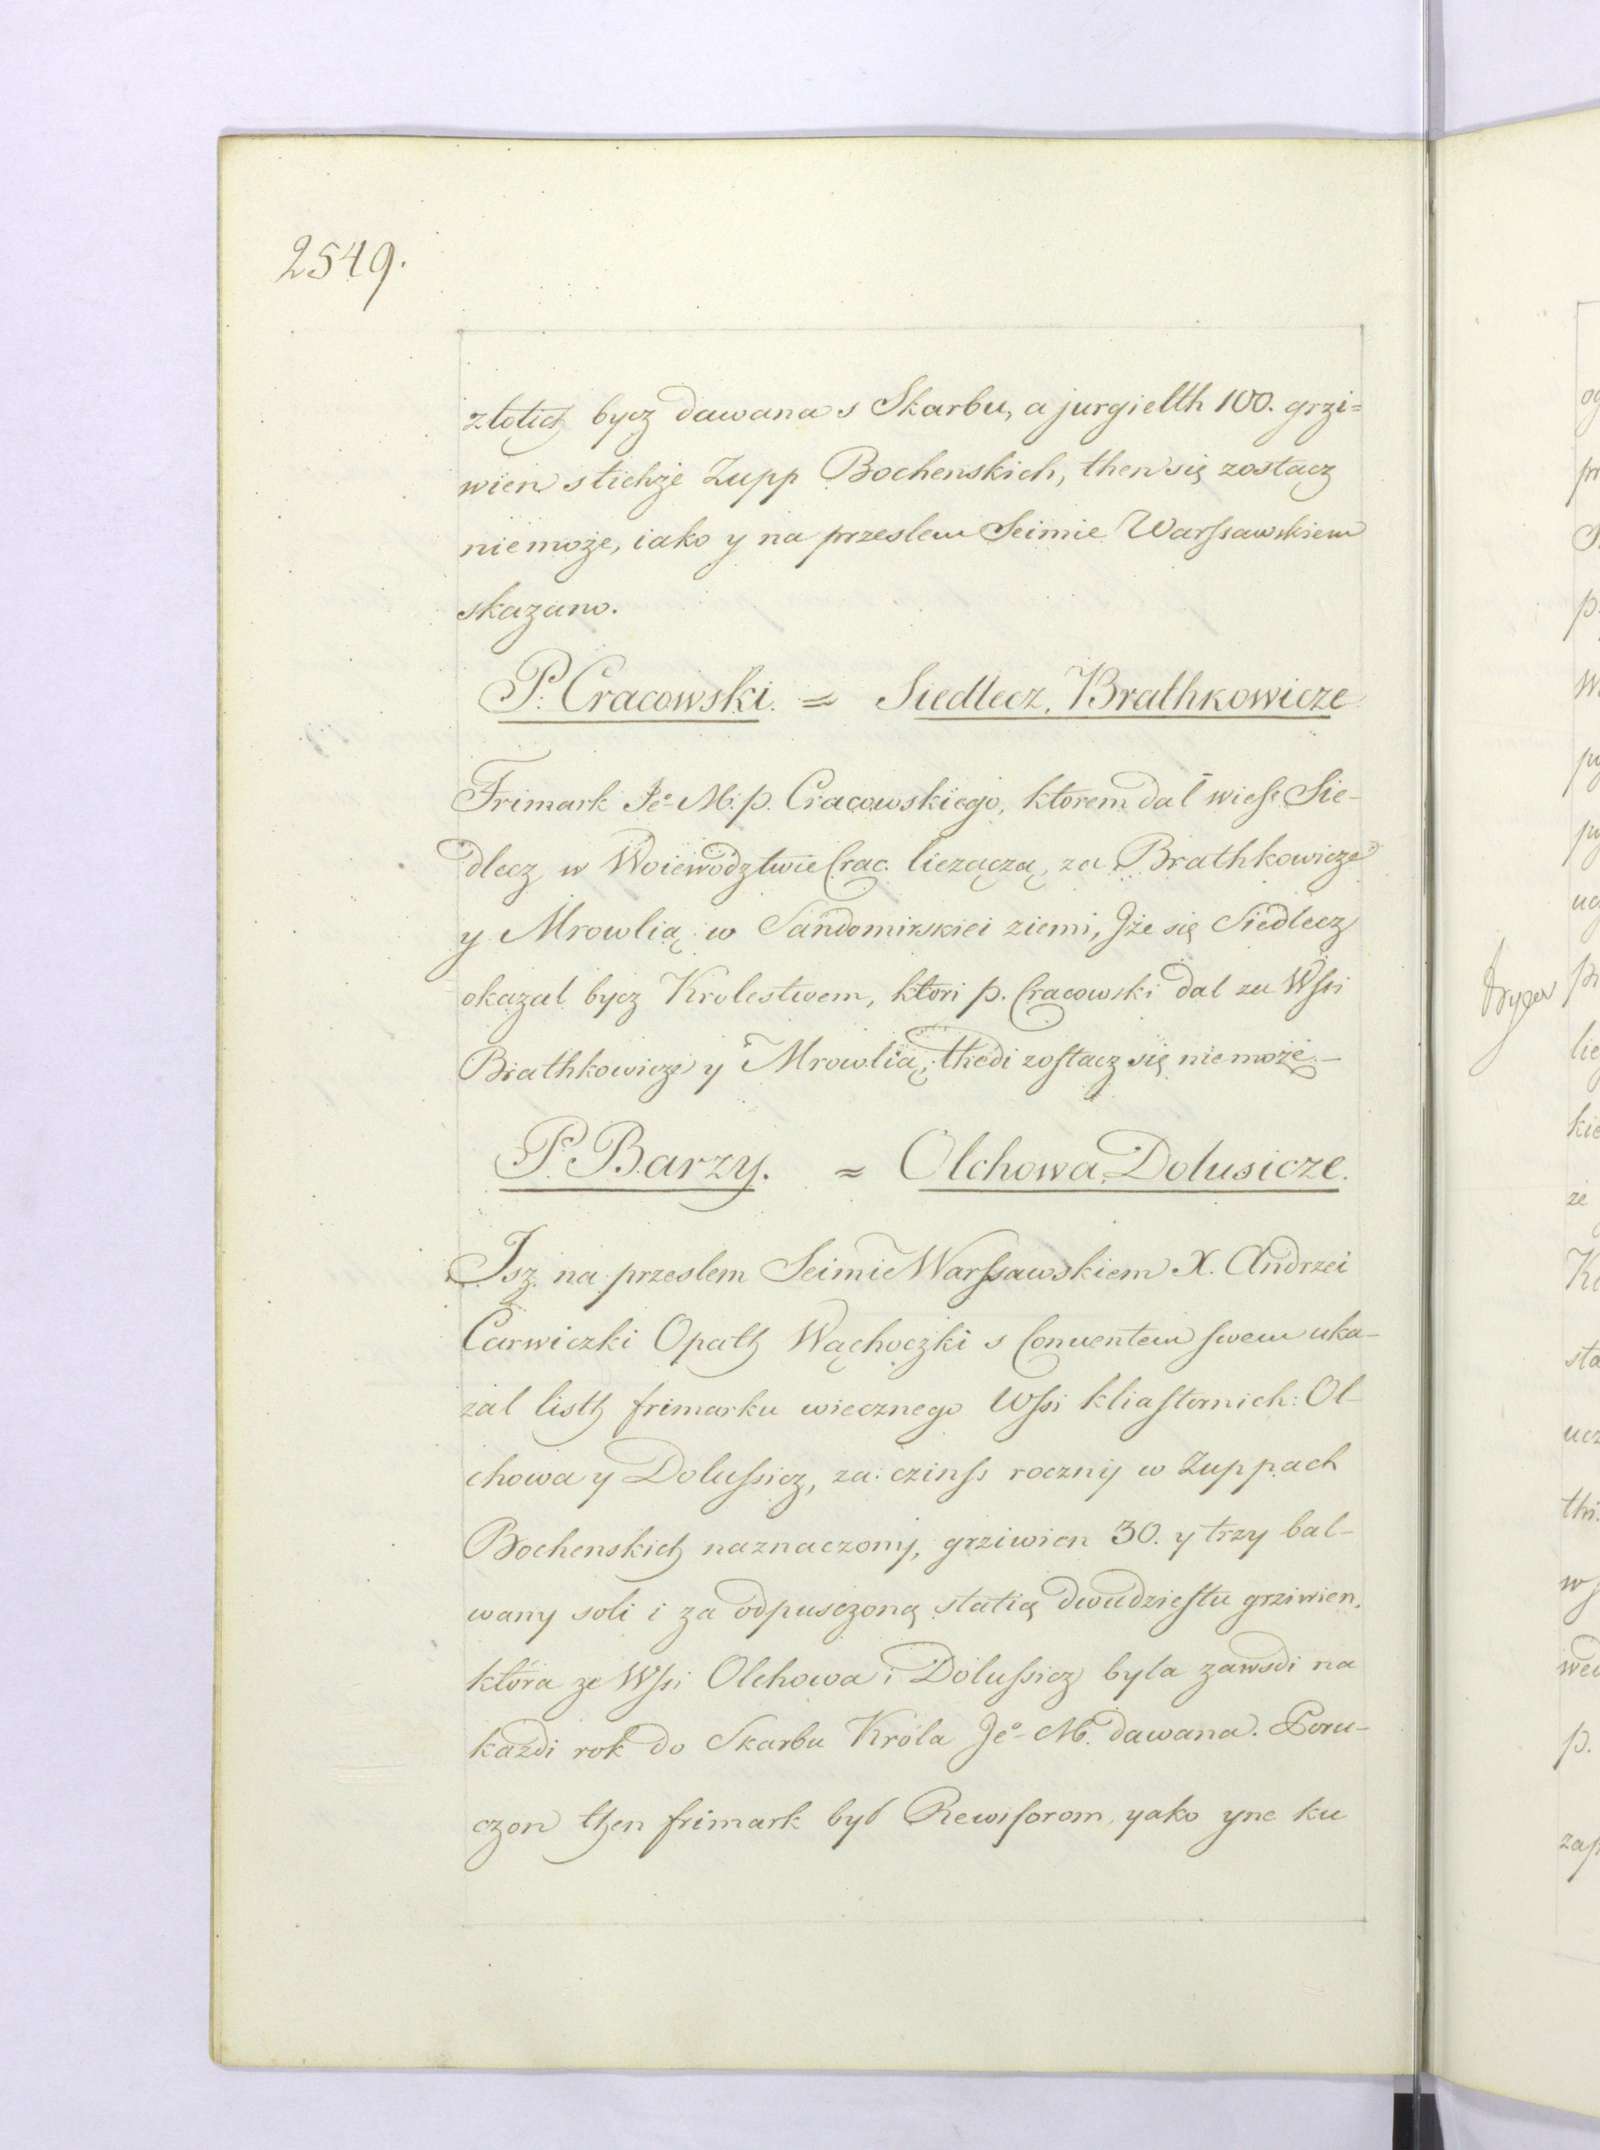 2549.
złotich bycz dawana s Skarbu, a jurgielth 100. grzi=
wien s tichże Zupp Bochenskich, then się zostacz
niemoże, iako y na przeslem Seimie Warssawskiem
skazano.
P. Cracowski. = Siedlecz, Brathkowicze
Frimark Je̊ M. p. Cracowskiego, ktorem dal wiess Sie-
dlecz w Woiewodztwie Crac. liezączą, za Brathkowicze
y Mrowlią w Sandomirskiei ziemi, Jże się Siedlecz
okazal bycz Krolestwem, ktori p. Cracowski dal za Wssi
Brathkowicze y Mrowlią, thedi zostacz się niemoże.—
P. Barzy. = Olchowa, Dolusicze.
Jsz na przeslem Seimie Warssawskiem X. Andrzei
Carwiczki Opath Wąchoczki s Conuentem swem uka-
zal listh frimarku wiecznego Wssi kliasternich: Ol-
chowa y Dolussicz, za czinss rocznij w Zuppach
Bochenskich naznaczonij, grziwien 30. y trzy bal-
wany soli i za odpusczoną statią dwudziestu grziwien,
która ze Wssi Olchowa i Dolussicz byla zawsdi na
każdi rok do Skarbu Króla Je̊ M. dawana. Poru-
czon then frimark był Rewisorom, yako yne ku